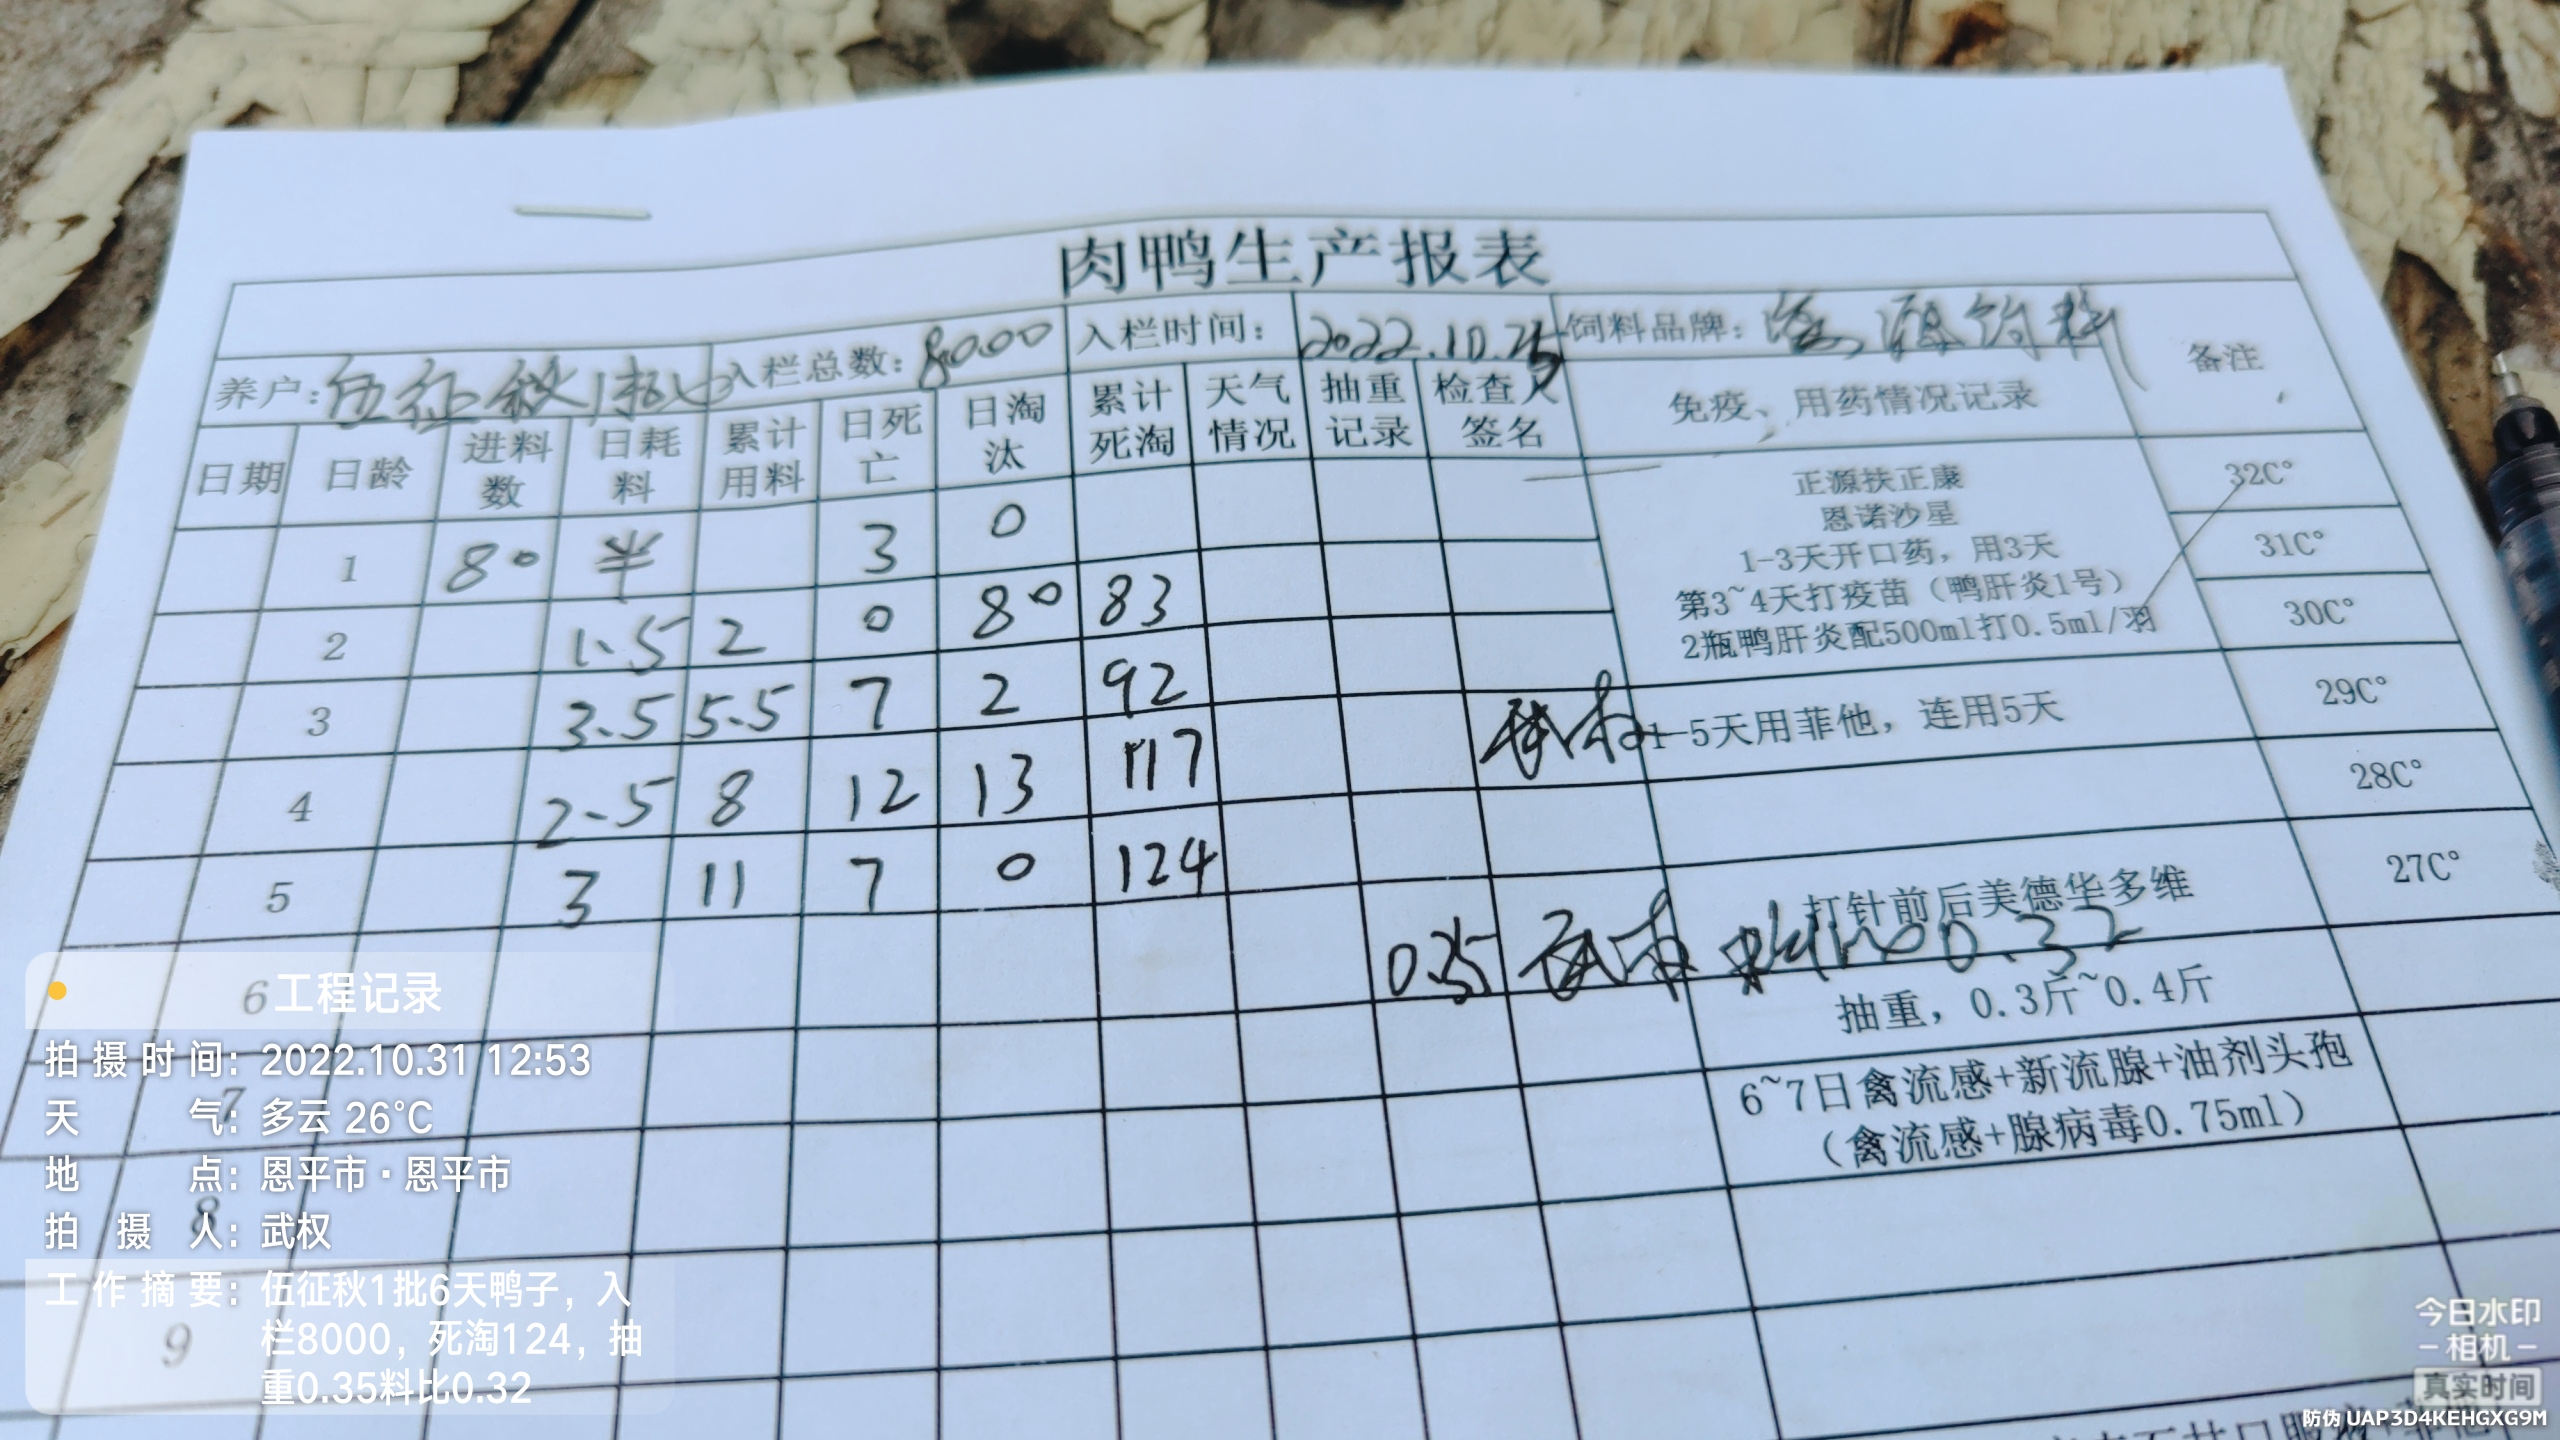 肉鸭生产报表
养户：伍征秋1批 入栏总数：8000 入栏时间：2022.10.25 饲料品牌： 饲料 备注
日期 日龄 进料数 日耗料 累计用料 日死亡 日淘汰 累计死淘 天气情况 抽重记录 检查人签名 免疫、用药情况记录
1 80 半 3 0
2 1.5 2 0 80 83
3 3.5 5.5 7 2 92
4 2.5 8 12 13 117
5 3 11 7 0 124
6 0.35 料比0.32
7
8
9
正源扶正康
恩诺沙星
1-3天开口药，用3天
第3~4天打疫苗（鸭肝炎1号）
2瓶鸭肝炎配500ml打0.5ml/羽
1-5天用菲他，连用5天
打针前后美德华多维
抽重，0.3斤~0.4斤
6~7日禽流感+新流腺+油剂头孢
（禽流感+腺病毒0.75ml）
32C°
31C°
30C°
29C°
28C°
27C°
工程记录
拍摄时间：2022.10.31 12:53
天气：多云 26℃
地点：恩平市·恩平市
拍摄人：武权
工作摘要：伍征秋1批6天鸭子，入
栏8000，死淘124，抽
重0.35料比0.32
今日水印
-相机-
真实时间
防伪 UAP3D4KEHGXG9M